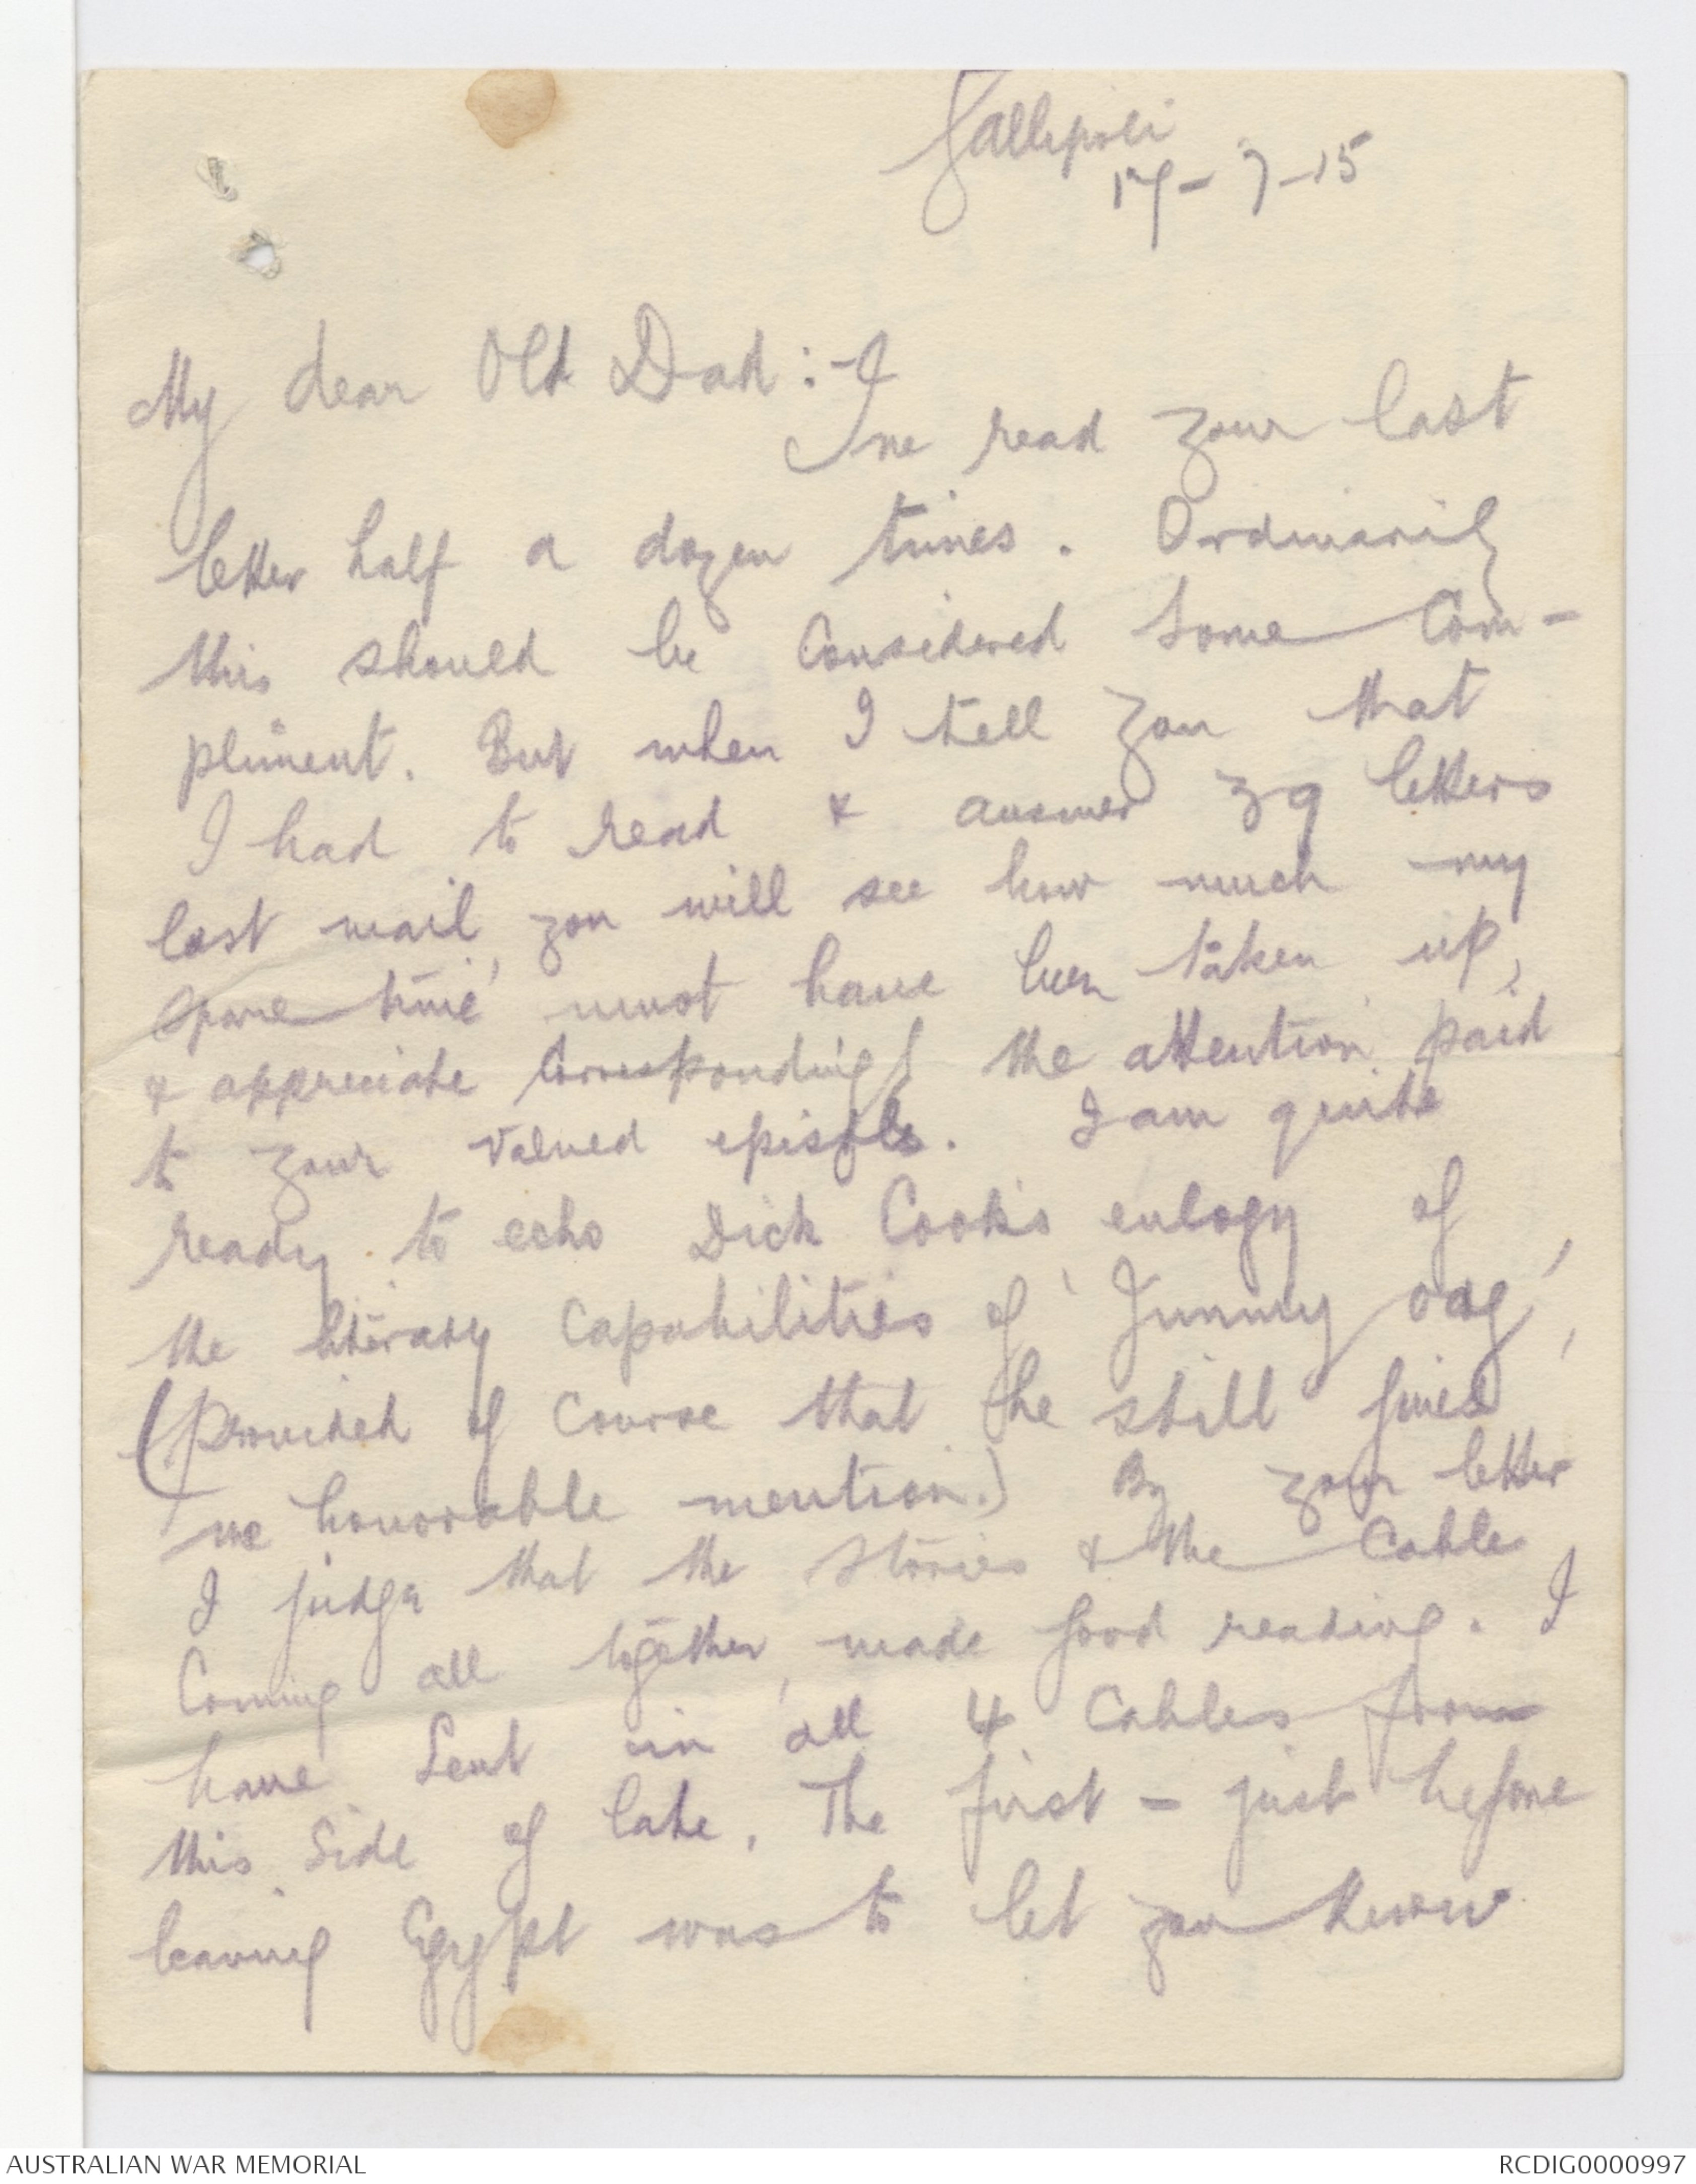 Gallipoli
17-7-15
My dear Old Dad:-
I've read your last
letter half a dozen times. Ordinarily
this should be considered some com-
pliment. But when I tell you that
I had to read & answer 39 letters
last mail, you will see how much my
spare time must have been taken up,
& appreciate correspondingly the attention paid
to your valued epistle. I am quite
ready to echo Dick Cook's eulogy of
the literary capabilities of 'Jimmy
(provided of course that he still gives
me honorable mention.) By your letter
I judge that the stories & the cable
coming all together, made good reading. I
have sent in all 4 cables from
this side of late. The first - just before
leaving Egypt was to let you know
AUSTRALIAN WAR MEMORIAL
RCDIG0000997